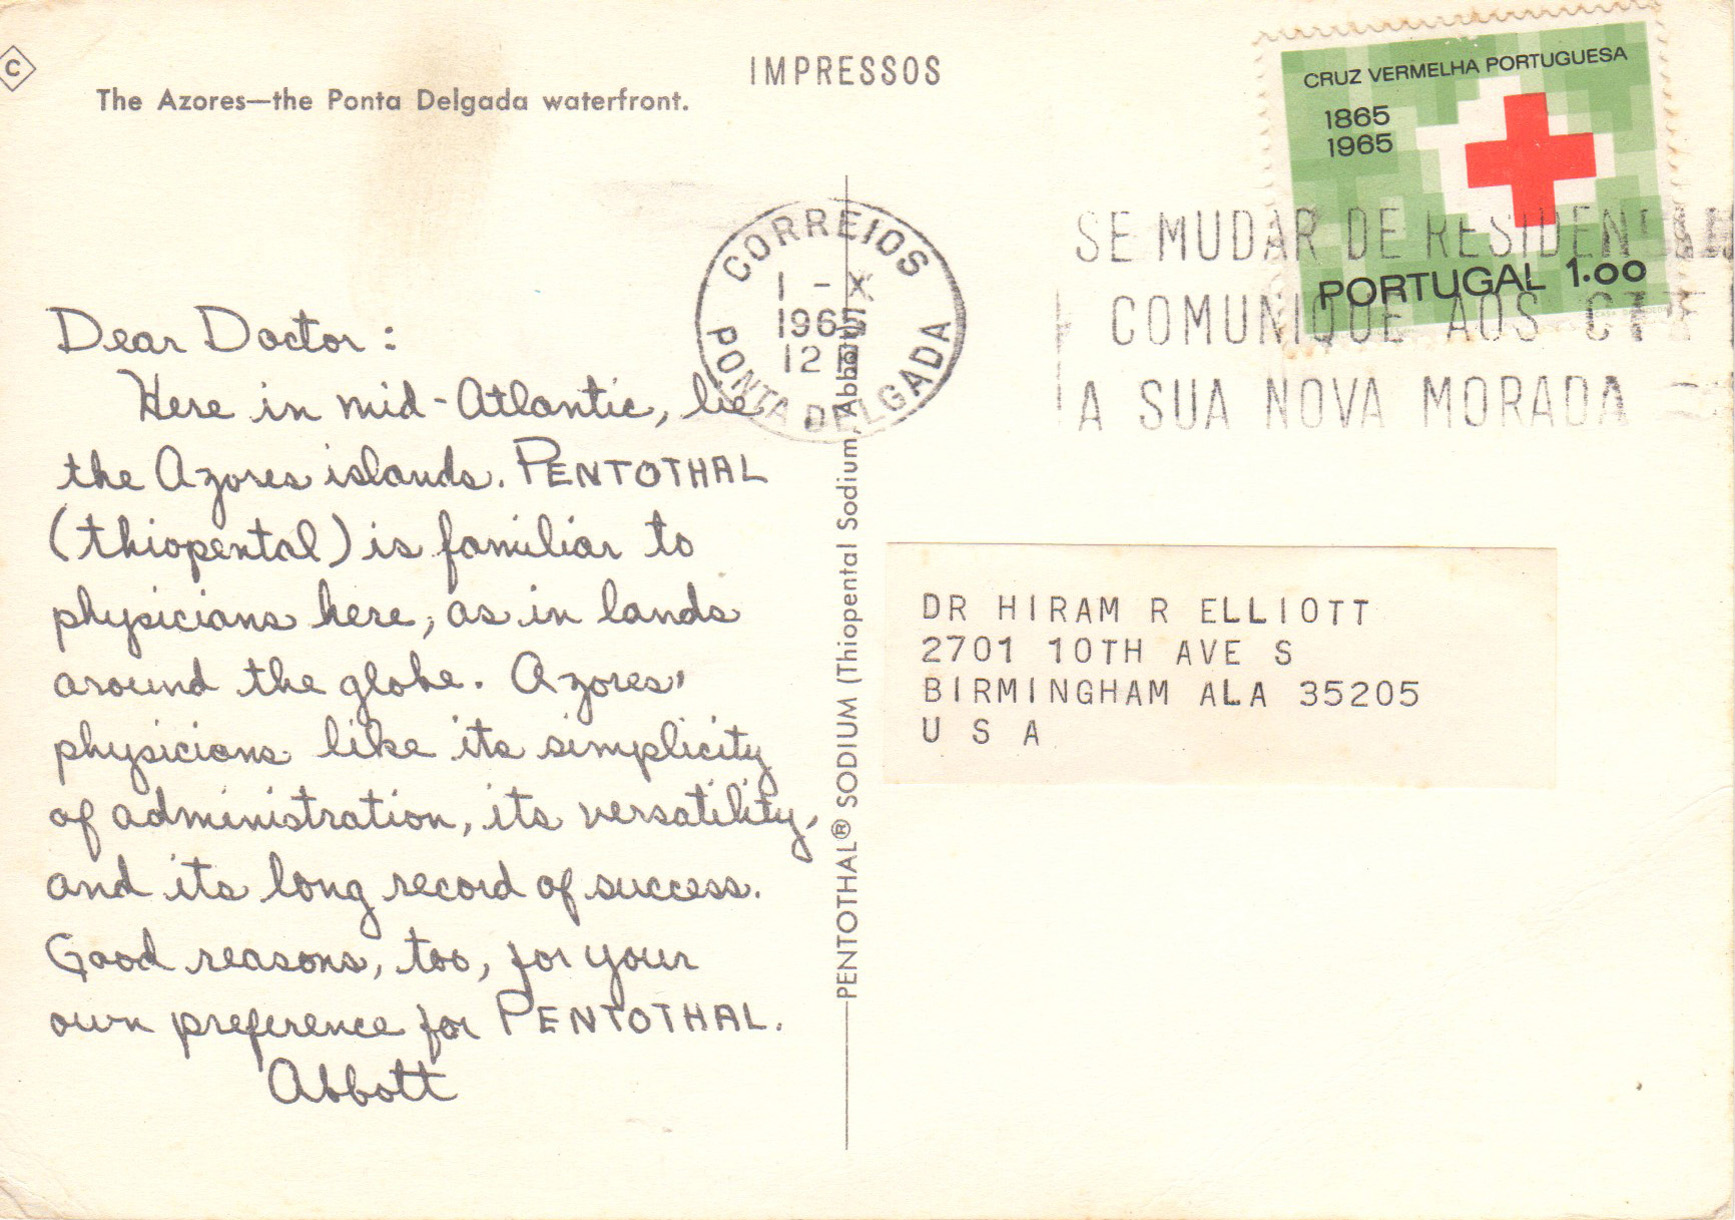 C
The Azores—the Ponta Delgada waterfront.
IMPRESSOS
CRUZ VERMELHA PORTUGUESA
1865
1965
PORTUGAL 1.00
CORREIOS
1 - X
196
12
PONTA DELGADA
SE MUDAR DE
COMUNIQUE AOS CTT
A SUA NOVA MORADA
Dear Doctor:
Here in mid-Atlantic, lie
the Azores islands. PENTOTHAL
(thiopental) is familiar to
physicians here, as in lands
around the globe. Azores'
physicians like its simplicity
of administration, its versatility,
and its long record of success.
Good reasons, too, for your
own preference for PENTOTHAL.
Abbott
PENTOTHAL® SODIUM (Thiopental Sodium, Abbott)
DR HIRAM R ELLIOTT
2701 10TH AVE S
BIRMINGHAM ALA 35205
U S A